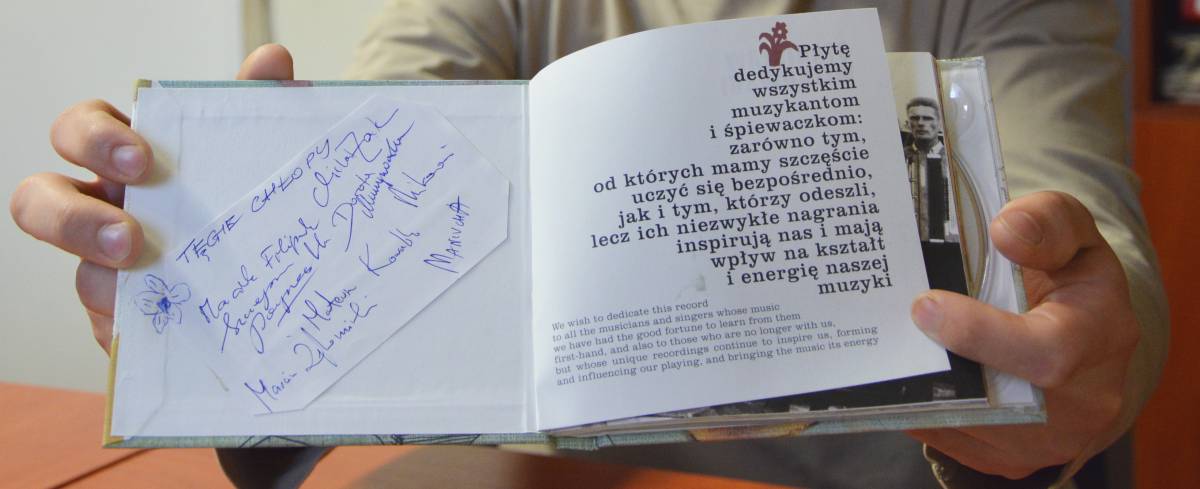 TĘGIE CHŁOPY
Maciek Filipek
Szczepan
Dorota
Mateusz
Kowalski
MANIUCHA
Marcin
Płytę
dedykujemy
wszystkim
muzykantom
i śpiewaczkom:
zarówno tym,
od których mamy szczęście
uczyć się bezpośrednio,
jak i tym, którzy odeszli,
lecz ich niezwykłe nagrania
inspirują nas i mają
wpływ na kształt
i energię naszej
muzyki
We wish to dedicate this record
to all the musicians and singers whose music
we have had the good fortune to learn from them
first-hand, and also to those who are no longer with us,
but whose unique recordings continue to inspire us, forming
and influencing our playing, and bringing the music its energy